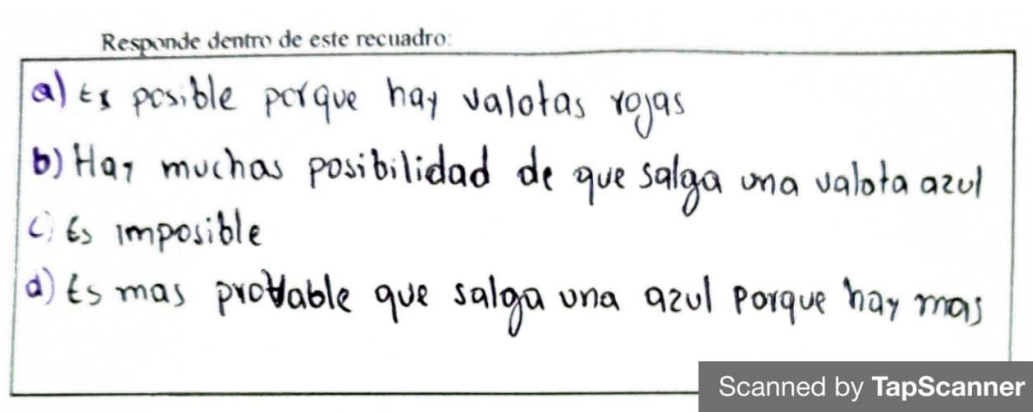 Responde dentro de este recuadro:
a) Es posible porque hay valotas rojas
b) Hay muchas posibilidad de que salga una valota azul
c) Es imposible
d) Es mas provable que salga una azul porque hay mas
Scanned by TapScanner